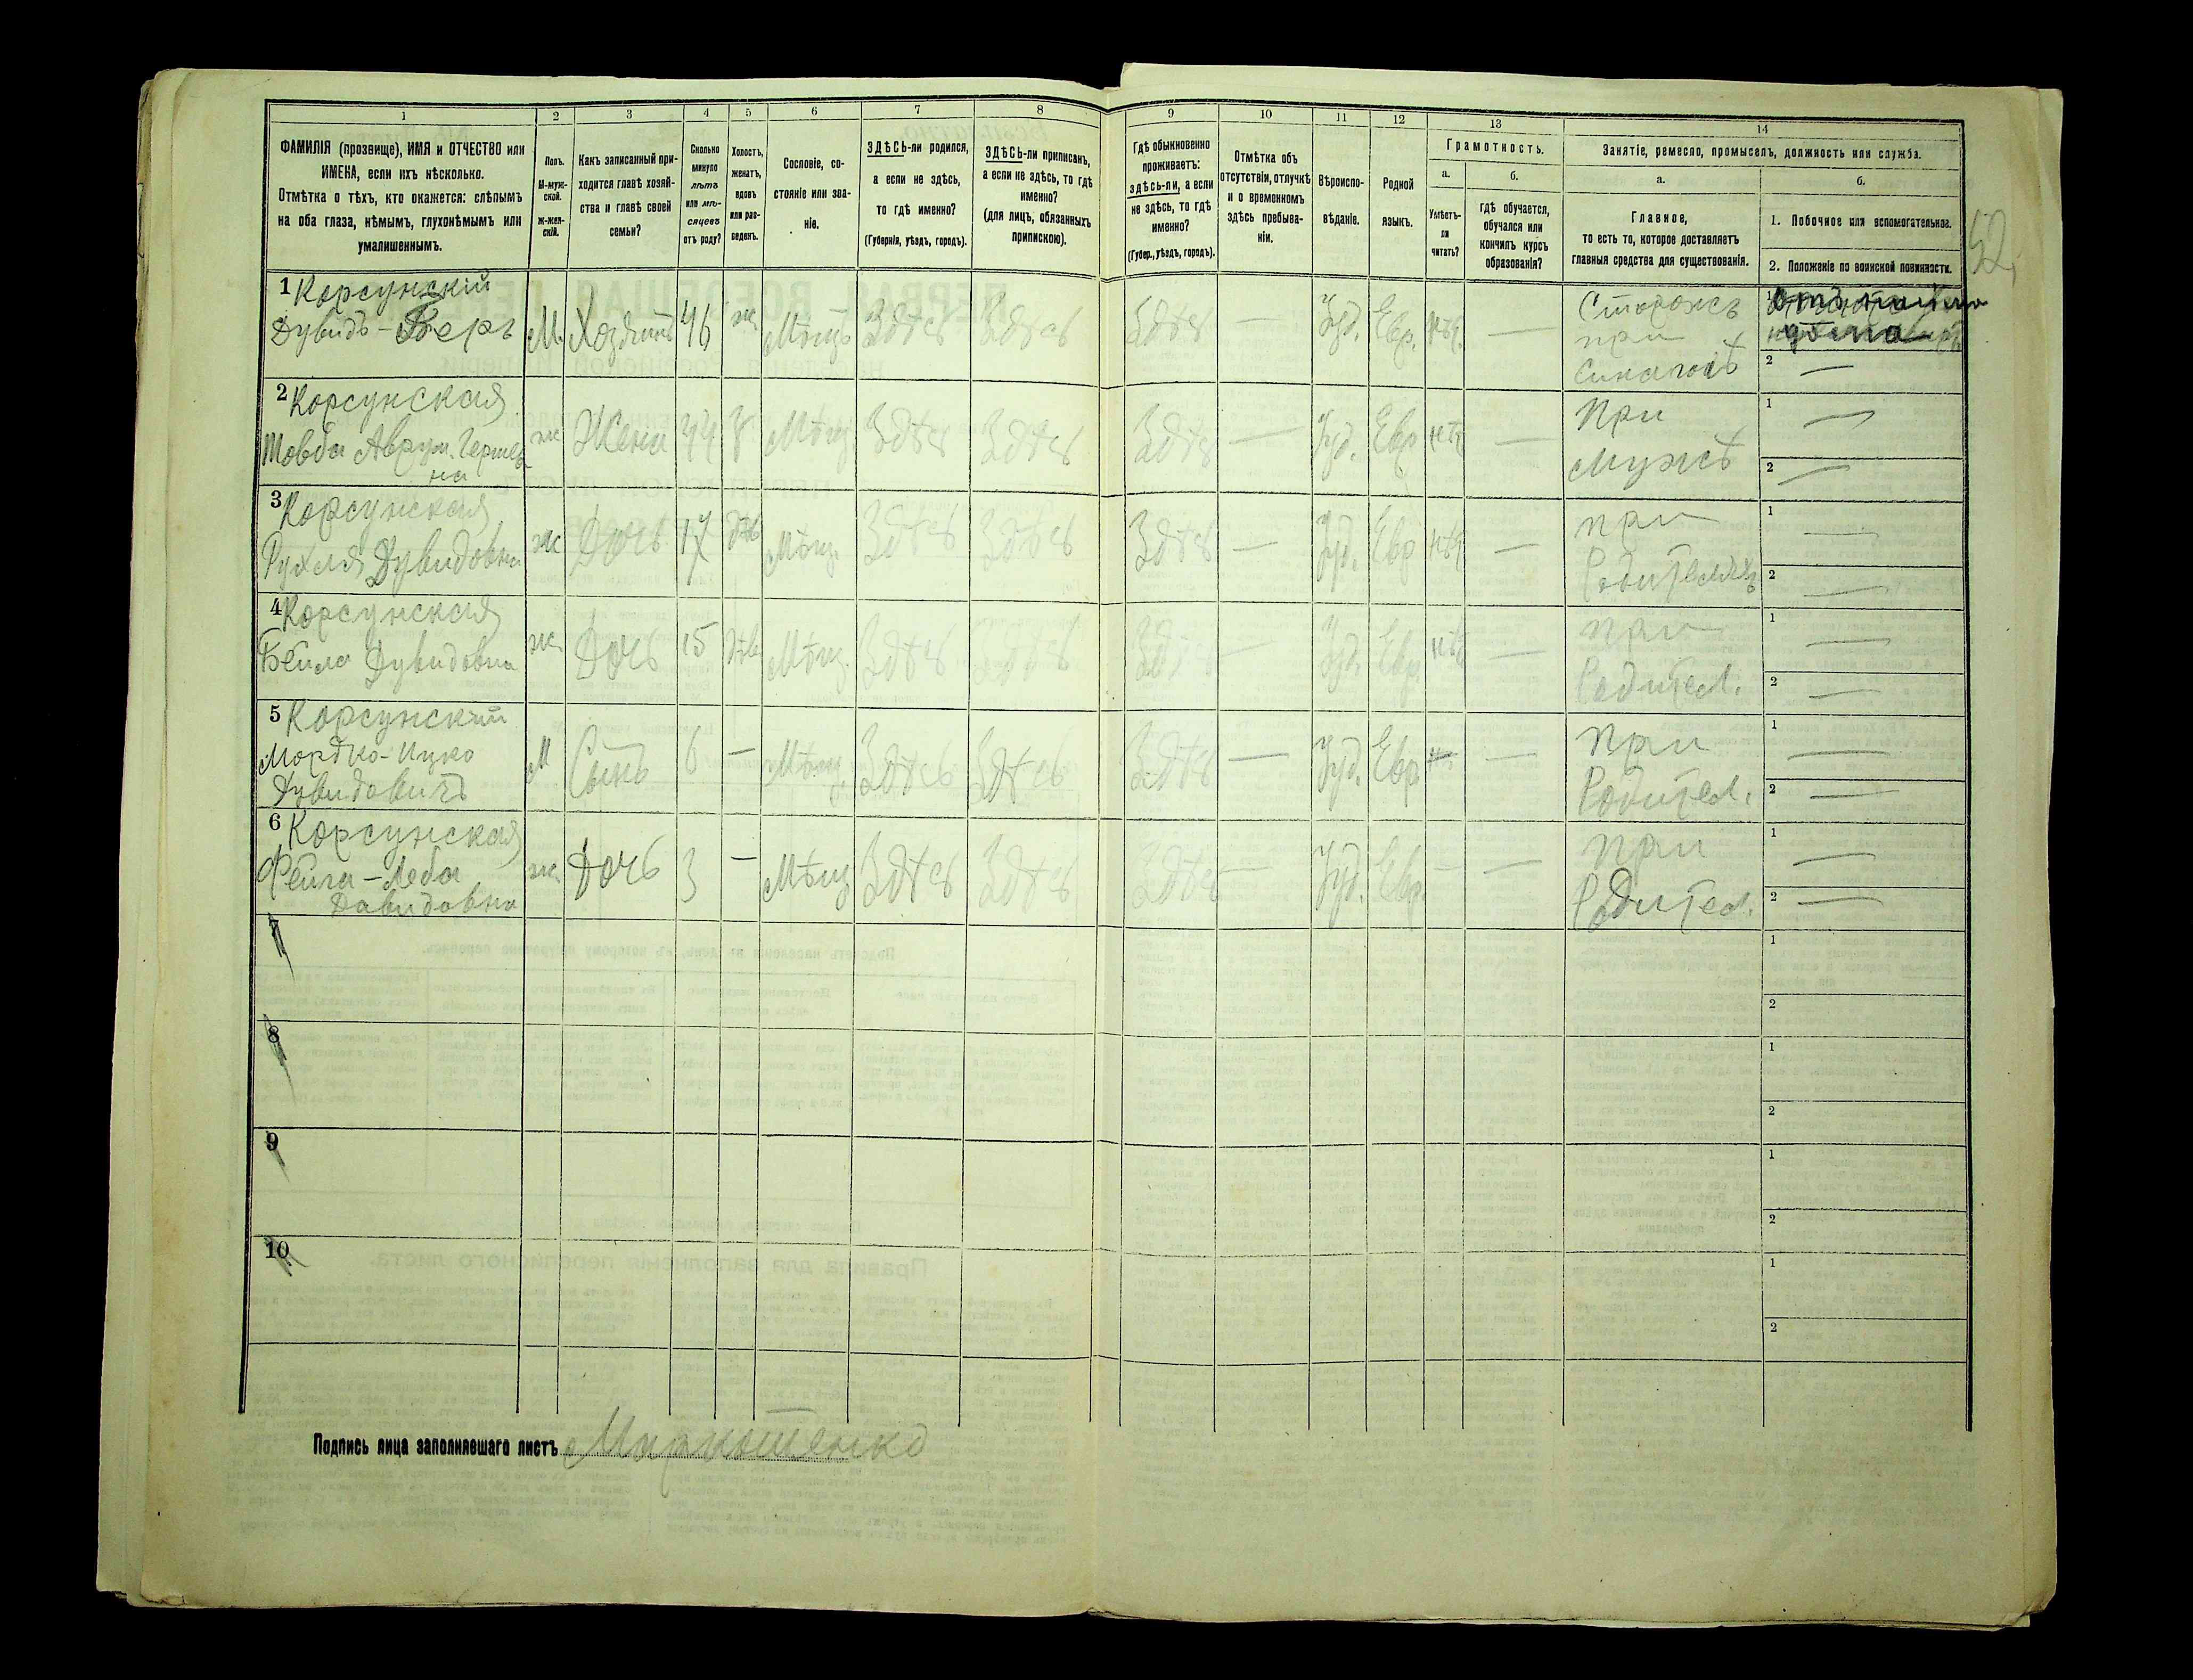 1 2 3 4 5 6 7 8 9 10 11 12 13 14
ФАМИЛІЯ (прозвище), ИМЯ и ОТЧЕСТВО или
ИМЕНА, если ихъ нѣсколько.
Отмѣтка о тѣхъ, кто окажется: слѣпымъ
на оба глаза, нѣмымъ, глухонѣмымъ или
умалишеннымъ.
Полъ.
М-муж-
ской.
Ж-жен-
скій.
Какъ записанный при-
ходится главѣ хозяй-
ства и главѣ своей
семьи?
Сколько
минуло
лѣтъ
или мѣ-
сяцевъ
отъ роду?
Холостъ,
женатъ,
вдовъ
или раз-
веденъ.
Сословіе, со-
стояніе или зва-
ніе.
ЗДѢСЬ-ли родился,
а если не здѣсь,
то гдѣ именно?
(Губернія, уѣздъ, городъ).
ЗДѢСЬ-ли приписанъ,
а если не здѣсь, то гдѣ
именно?
(для лицъ, обязанныхъ
припискою).
Гдѣ обыкновенно
проживаетъ:
здѣсь-ли, а если
не здѣсь, то гдѣ
именно?
(Губер., уѣздъ, городъ).
Отмѣтка объ
отсутствіи, отлучкѣ
и о временномъ
здѣсь пребыва-
ніи.
Вѣроиспо-
вѣданіе.
Родной
языкъ.
Грамотность.
а.
Умѣетъ-
ли
читать?
б.
гдѣ обучается,
обучался или
кончилъ курсъ
образованія?
Занятіе, ремесло, промыселъ, должность или служба.
а.
Главное,
то есть то, которое доставляетъ
главныя средства для существованія.
б.
1. Побочное или вспомогательное.
2. Положеніе по воинской повинности.
52
1 Корсунскій
Дувидъ-Беръ М. Хозяинъ 46 ж Мѣщ. Здѣсь Здѣсь Здѣсь — Іуд. Евр. нѣт. — Сторожъ
при
Синагогѣ
2 —
2 Корсунская
Товба Аврум. Гершев
на ж Жена 44 З Мѣщ Здѣсь Здѣсь Здѣсь — Іуд. Евр нѣт — При
мужѣ
1 —
2 —
3 Корсунская
Рухля Дувидовна ж Дочь 17 дѣв Мѣщ. Здѣсь Здѣсь Здѣсь — Іуд. Евр нѣт — при
Родителяхъ
1 —
2 —
4 Корсунская
Бейла Дувидовна ж Дочь 15 дѣв Мѣщ. Здѣсь Здѣсь Здѣсь — Іуд. Евр. нѣт — при
Родител.
1 —
2 —
5 Корсунскій
Мордко-Ицко
Дувидовичъ М Сынъ 6 — Мѣщ. Здѣсь Здѣсь Здѣсь — Іуд. Евр — при
Родител.
1 —
2 —
6 Корсунская
Фейга-Леба
Давидовна ж. Дочь 3 — Мѣщ Здѣсь Здѣсь Здѣсь — Іуд. Евр. — — при
Родител.
1 —
2 —
7
1
2
8
1
2
9
1
2
10
1
2
Подпись лица заполнявшаго листъ